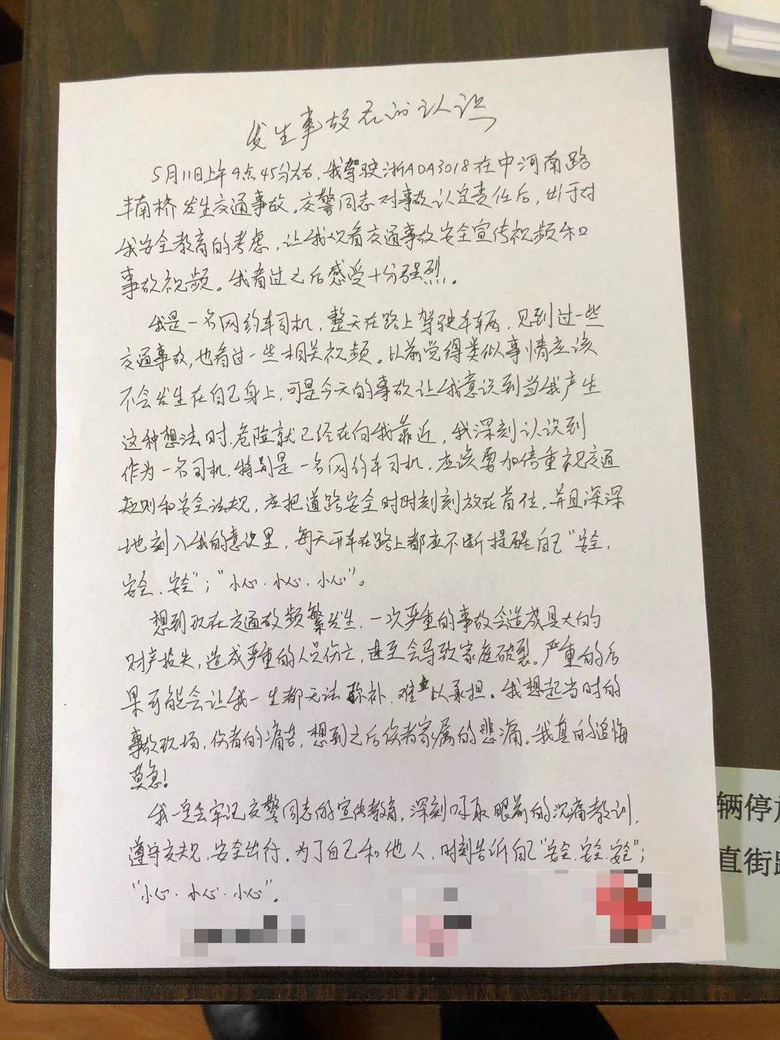 发生事故后的认识
5月11日上午9点45分左右,我驾驶浙ADA3018在中河南路
丰南桥发生交通事故。交警同志对事故认定责任后,出于对
我安全教育的考虑,让我观看交通事故安全宣传视频和
事故视频。我看过之后感受十分强烈。
我是一名网约车司机,整天在路上驾驶车辆,见到过一些
交通事故,也看过一些相关视频。以前觉得类似事情应该
不会发生在自己身上,可是今天的事故让我意识到当我产生
这种想法时,危险就已经在向我靠近,我深刻认识到
作为一名司机,特别是一名网约车司机,应该要加倍重视交通
规则和安全法规,应把道路安全时时刻刻放在首位,并且深深
地刻入我的意识里,每天开车在路上都应不断提醒自己"安全,
安全、安全";"小心.小心.小心"。
想到现在交通故频繁发生,一次严重的事故会造成具大的
财产损失,造成严重的人员伤亡,甚至会导致家庭破裂。严重的后
果可能会让我一生都无法弥补、难以承担。我想起当时的
事故现场,伤者的痛苦,想到之后伤者家属的悲痛,我真的追悔
莫急!
我一定会牢记交警同志的宣传教育,深刻吸取眼前的沉痛教训,
遵守交规,安全出行。为了自己和他人,时刻告诉自己"安全、安全、安全";
"小心.小心.小心"。
辆停放
直街